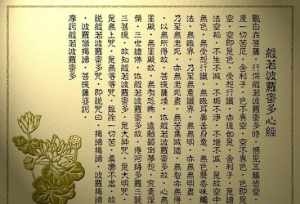 般若波羅蜜多心經
觀自在菩薩。行深般若波羅蜜多時。照見五蘊皆空。
度一切苦厄。舍利子。色不異空。空不異色。色即是
空。空即是色。受想行識。亦復如是。舍利子。是諸
法空相。不生不滅。不垢不淨。不增不減。是故空中
無色。無受想行識。無眼耳鼻舌身意。無色聲香味觸
法。無眼界。乃至無意識界。無無明。亦無無明盡。
乃至無老死。亦無老死盡。無苦集滅道。無智亦無得
。以無所得故。菩提薩埵。依般若波羅蜜多故。心無
罣礙。無罣礙故。無有恐怖。遠離顛倒夢想。究竟涅
槃。三世諸佛。依般若波羅蜜多故。得阿耨多羅三藐
三菩提。故知般若波羅蜜多。是大神咒。是大明咒。
是無上咒。是無等等咒。能除一切苦。真實不虛。故
說般若波羅蜜多咒。即說咒曰。揭諦揭諦。波羅揭諦
。波羅僧揭諦。菩提薩婆訶
摩訶般若波羅蜜多